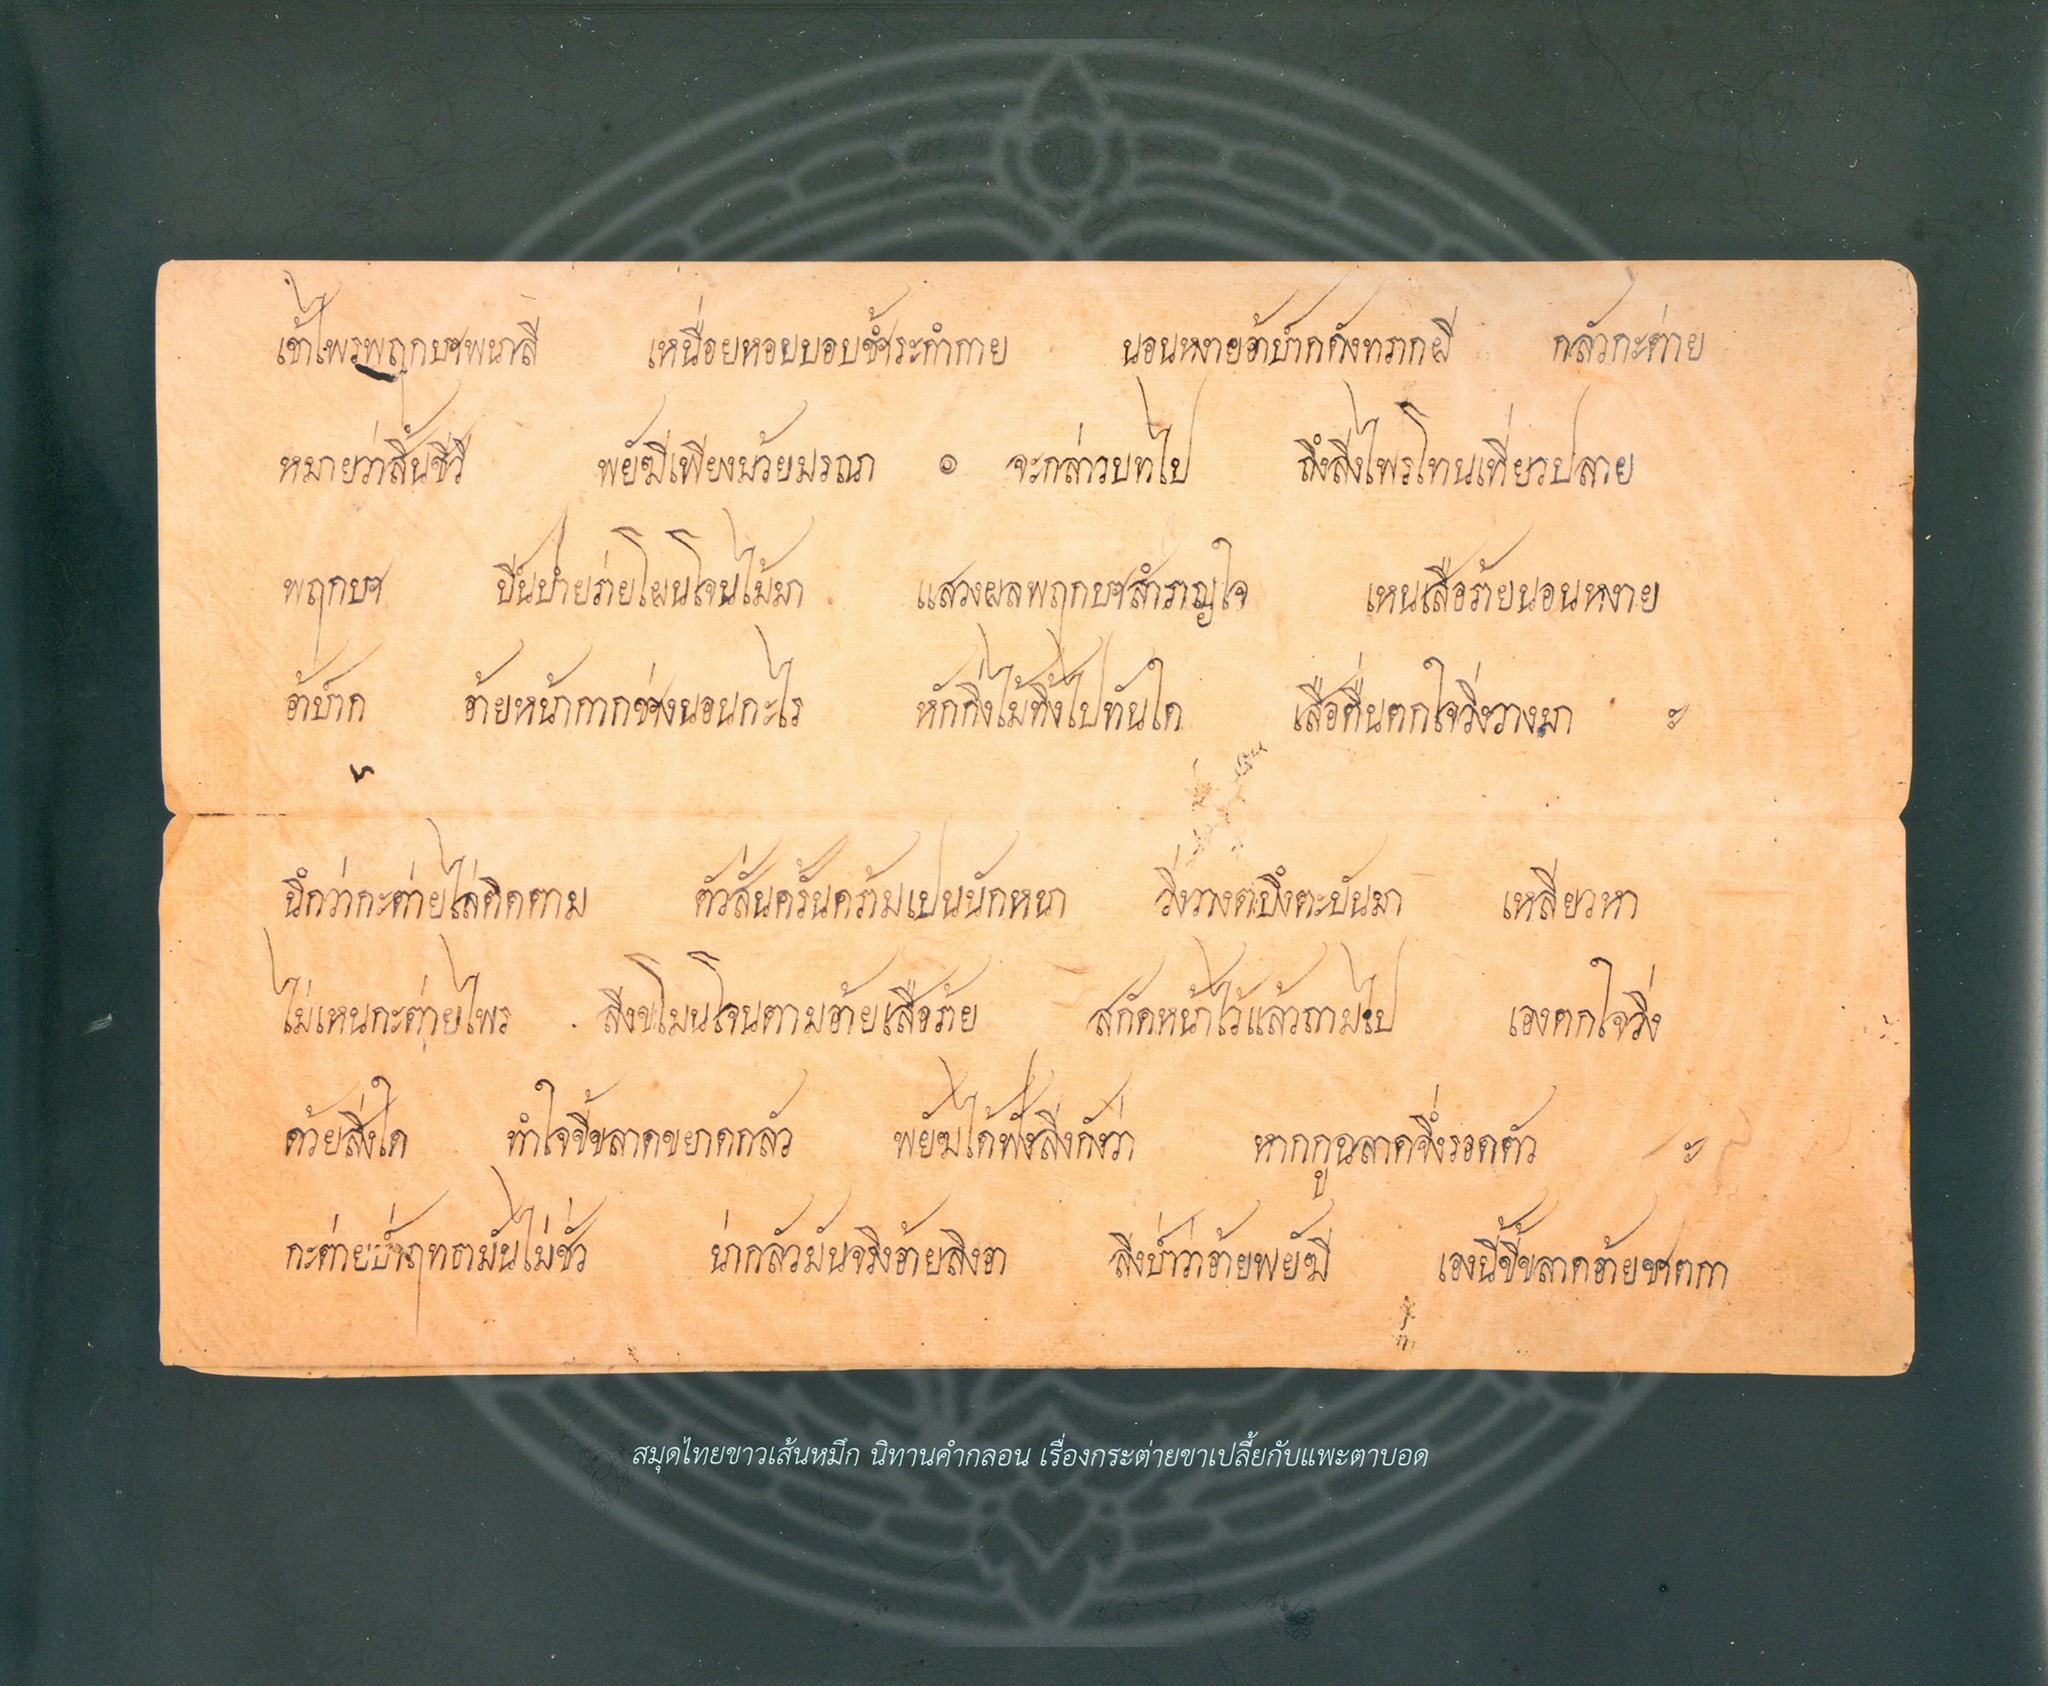 เข้าไพรพฤกษาพนาลี เหนื่อยหอบบอบช้ำระกำกาย นอนหงายอ้าปากดังทรากผี กลัวกะต่าย
หมายว่าสิ้นชีวี พยัฆีเพียงม้วยมรณา ๏ จะกล่าวบทไป ถึงลิงไพรโทนเที่ยวปลาย
พฤกษา ปีนป่ายร่ายโผนโจนไม้มา แสวงผลพฤกษาสำราญใจ เหนเสือร้ายนอนหงาย
อ้าปาก อ้ายหน้ากากช่างนอนกะไร หักกิ่งไม้ทิ้งไปทันใด เสือตื่นตกใจวิ่งวางมา ะ
นึกว่ากะต่ายไล่ติดตาม ตัวสั่นครั่นคร้ามเปนนักหนา วิ่งวางตะบึงตะบันมา เหลียวหา
ไม่เหนกะต่ายไพร ลิงโผนโจนตามอ้ายเสือร้าย สกัดหน้าไว้แล้วถามไป เองตกใจวิ่ง
ด้วยสิ่งใด ทำใจขี้ขลาดขยาดกลัว พยัฆได้ฟังลิงกังว่า หากกูฉลาดจึ่งรอดตัว ะ
กะต่ายป่าฤทธามันไม่ชั่ว น่ากลัวมันจริงอ้ายลิงอา ลิงป่าว่าอ้ายพยัฆี เองนี้ขี้ขลาดอ้ายชาตกา
สมุดไทยขาวเส้นหมึก นิทานคำกลอน เรื่องกระต่ายขาเปลี้ยกับแพะตาบอด